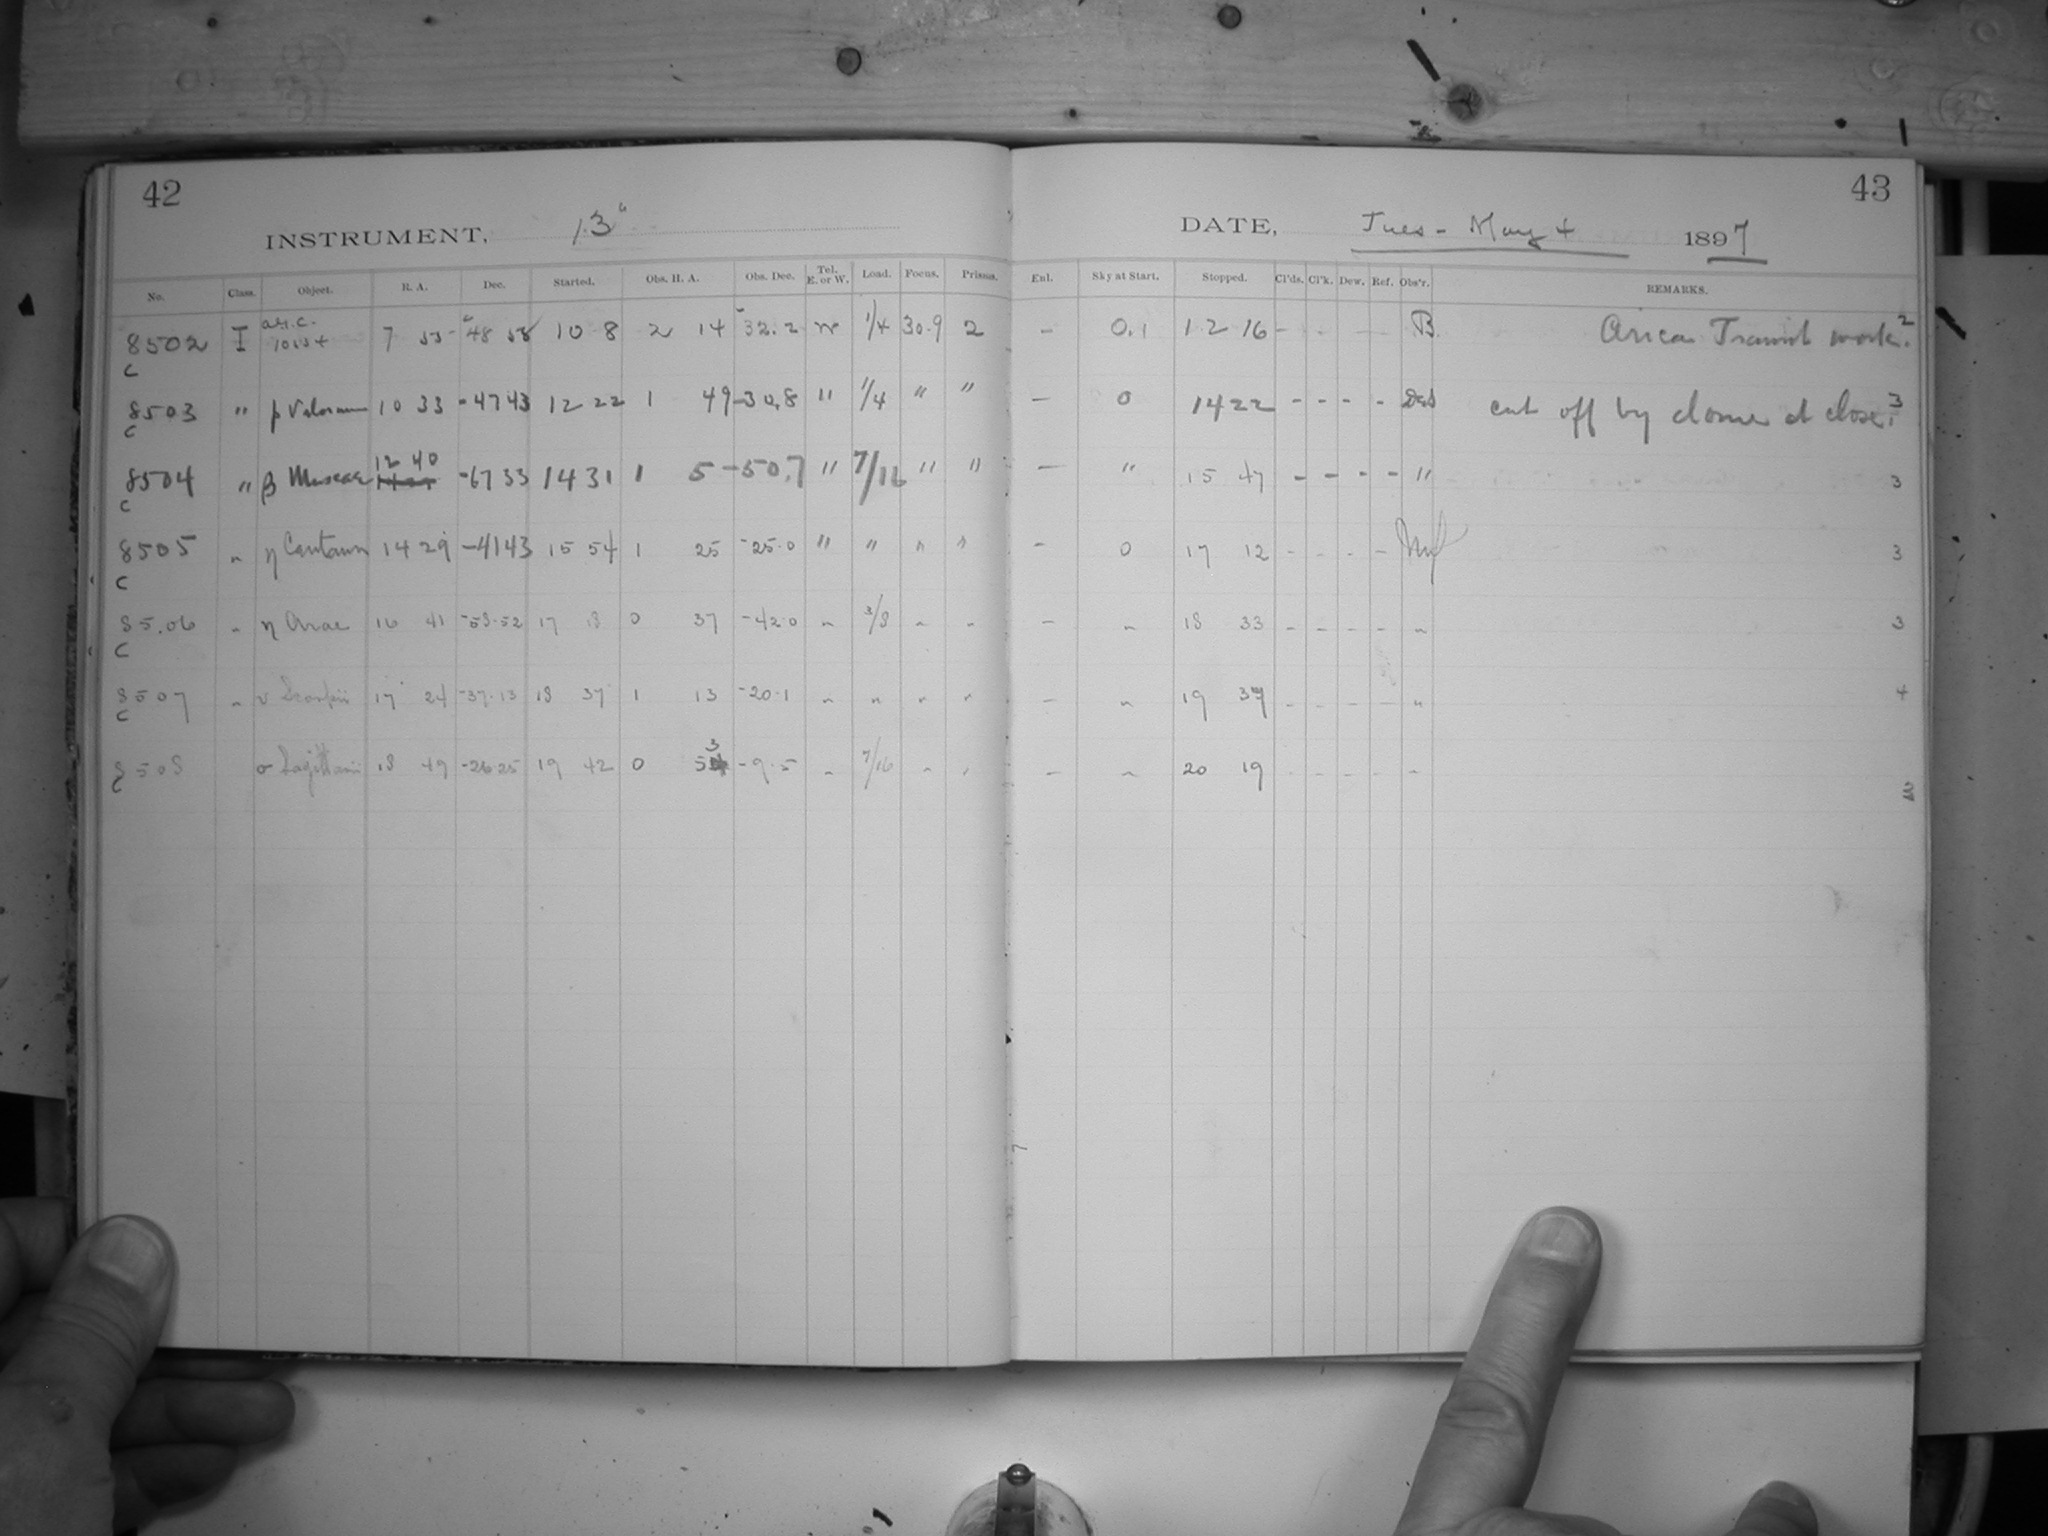 42
43
INSTRUMENT, 13"
DATE, Tues - May 4 1897
No. Class. Object. R. A. Dec. Started. Obs. H. A. Obs. Dec. Tel. E. or W. Load. Focus. Prisms. Enl. Sky at Start. Stopped. Cl'ds. Cl'k. Dew. Ref. Obs'r. REMARKS.
8502 I a.g.c. 7 53 -48 58 10 8 2 14 -32.2 W 1/4 30.9 2 - 0.1 12 16 - - - - B. Arica Transit work. 2
C
8503 " p Velorum 10 33 -47 43 12 22 1 49 -30.8 " 1/4 " " - 0 14 22 - - - - cut off by dome at close. 3
C
8504 " β Muscae 12 40 -67 33 14 31 1 5 -50.7 " 7/16 " " - " 15 47 - - - - " 3
C
8505 " η Centauri 14 29 -41 43 15 54 1 25 -25.0 " " " " - 0 17 12 - - - - 3
C
8506 " η Arae 16 41 -58.52 17 18 0 37 -42.0 " 3/8 " " - " 18 33 - - - - " 3
C
8507 " υ Scorpii 17 24 -37.13 18 37 1 13 -20.1 " " " " - " 19 37 - - - - " 4
C
8508 σ Sagittarii 18 49 -26 25 19 42 0 53 -9.5 " 7/16 " " - " 20 19 - - - - " 3
C